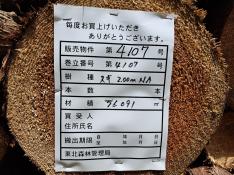 毎度お買上げいただき
ありがとうございます。
販売物件 第4107号
巻立番号 第4107号
樹種 スギ 2.00m NA
本数 本
材積 96.091 m³
買受人
住所氏名
搬出期限 自 年 月 日
至 年 月 日
東北森林管理局